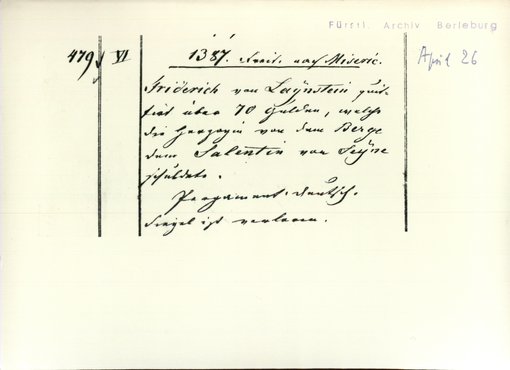 Fürstl. Archiv Berleburg
479 VI 1387. Freit. nach Miseric. April 26
Friderich von Laynstein quit-
tirt über 70 Gulden, welche
die Herzogin von dem Berge
dem Salentin von Seyne
schuldete.
Pergament. deutsch.
Siegel ist verloren.